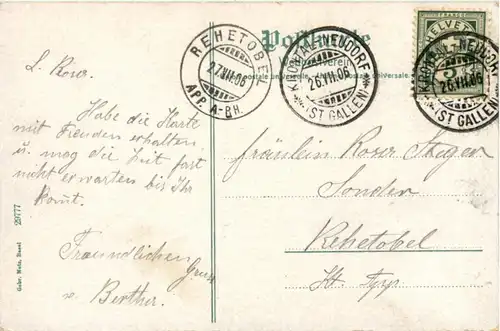 Postkarte
Weltpostverein
REHETOBEL
27.VII.06
APP. A-RH.
KRONTAL-NEUDORF
26.VII.06
(ST GALLEN)
HELVETIA
5
FRANCO
KRONTAL-NEUDORF
26.VII.06
(ST GALLEN)
L. Rosa.
Habe die Karte
mit Freuden erhalten
u. mag die Zeit fast
nicht erwarten bis Ihr
komt.
Freundlichen
Gruss
v. Berther.
Fräulein Rosa
Sonder
Rehetobel
Kt. App.
29777
Gebr. Metz, Basel